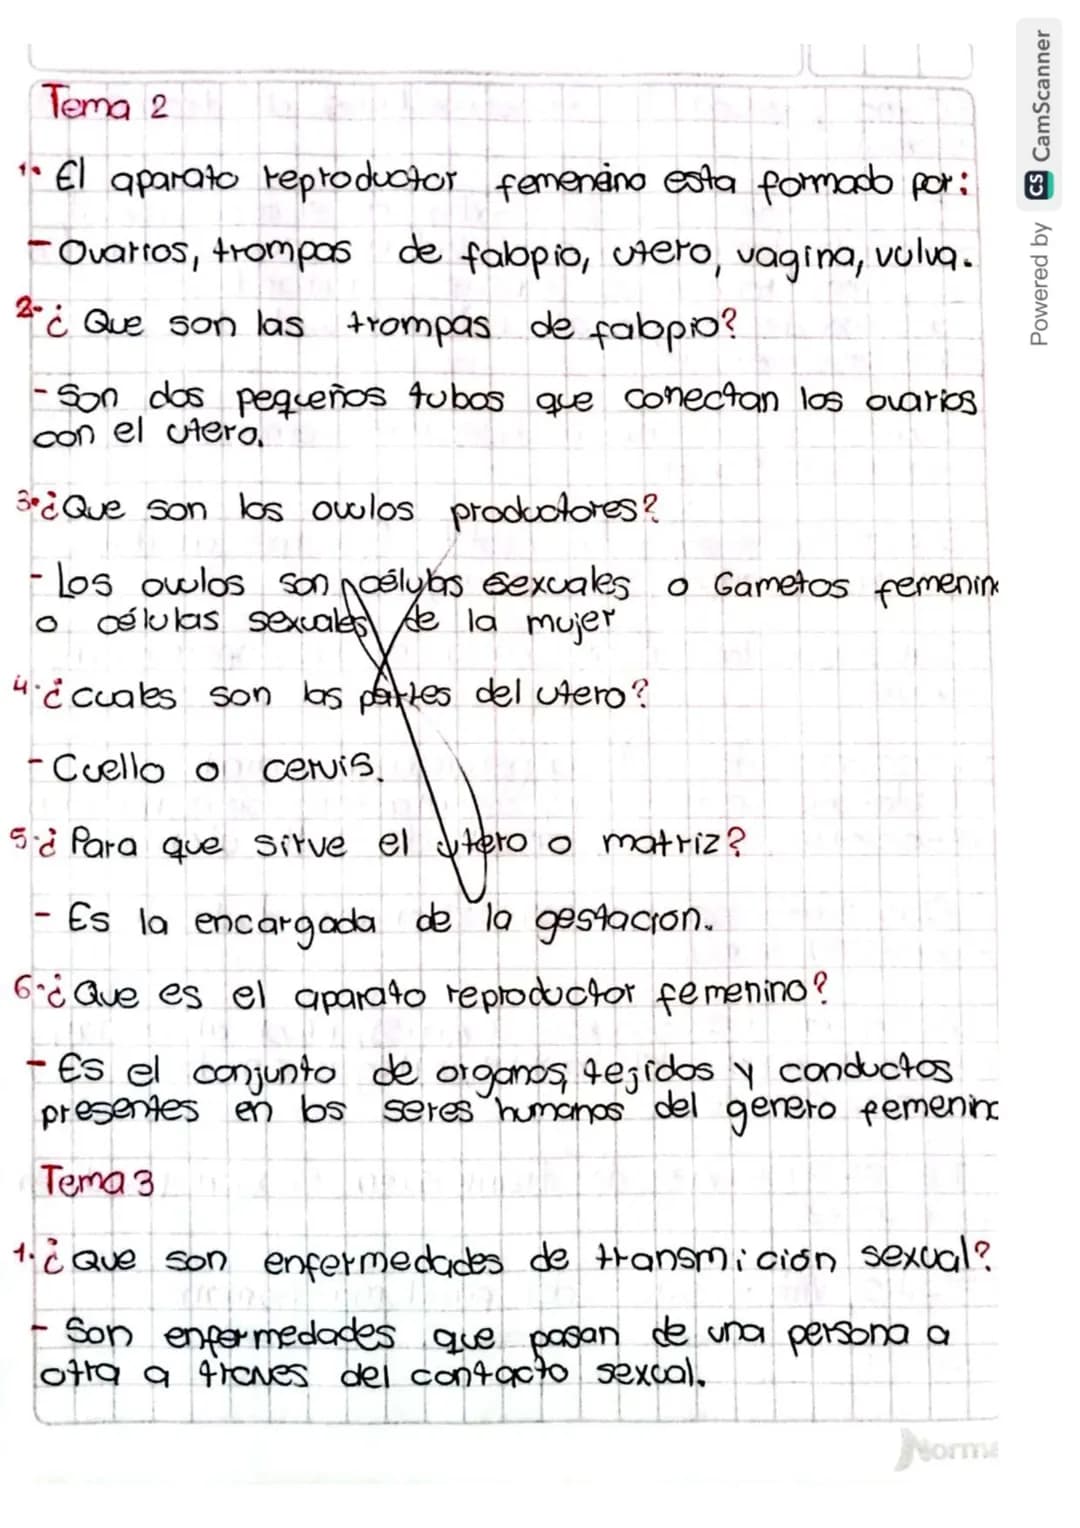 Tema 2
1. El aparato reproductor femenino esta formado por:
- Ovarios, trompas de falopio, utero, vagina, vulva.
2- ¿Que son las trompas de falopio?
- Son dos pequeños tubos que conectan los ovarios
con el utero.
3. ¿Que son los ovulos productores?
- Los ovulos son células sexuales o Gametos femenin
o células sexuales de la mujer
4. ¿cuales son las partes del utero?
- Cuello o cervis.
5. ¿Para que sirve el utero o matriz?
- Es la encargada de la gestacion.
6. ¿Que es el aparato reproductor femenino?
- Es el conjunto de organos, tejidos y conductos
presentes en los seres humanos del genero femenino
Tema 3
1. ¿que son enfermedades de transmición sexual?
- Son enfermedades que pasan de una persona a
otra a traves del contacto sexcual.
Norma
Powered by CS CamScanner